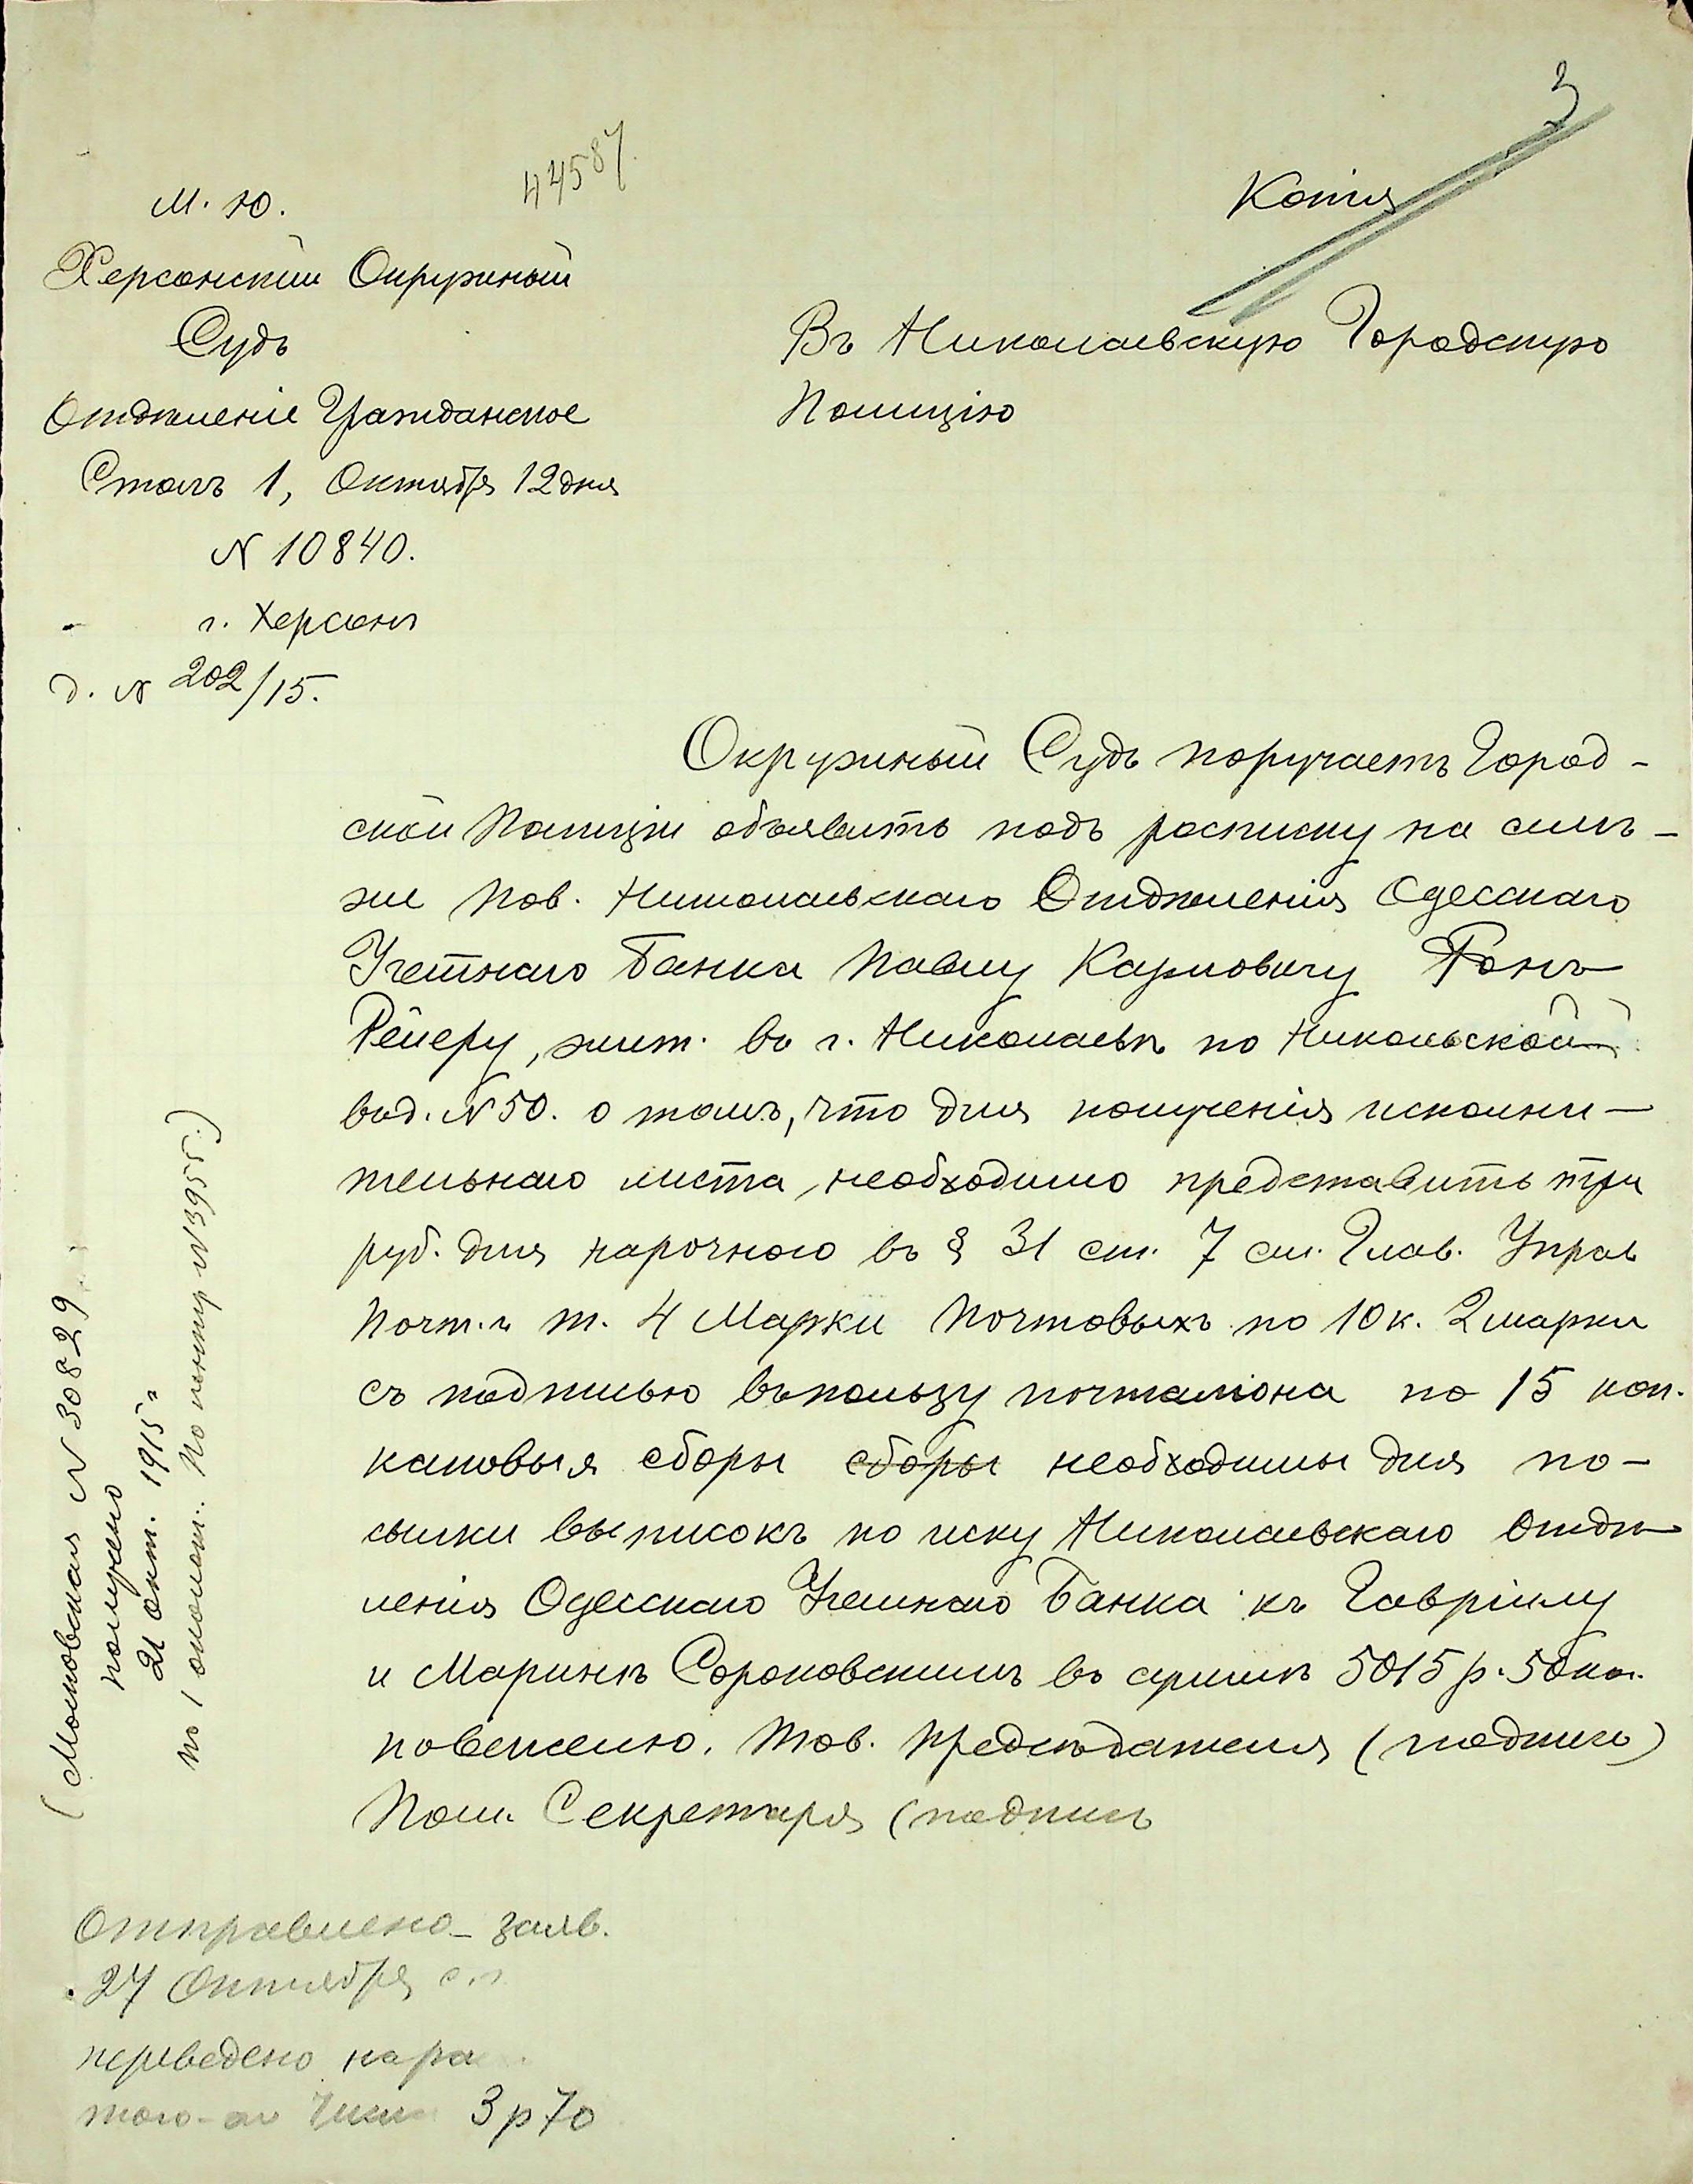 3
44587.
Копія
М. Ю.
Херсонскій Окружный
Судъ
Отдѣленіе Гражданское
Столъ 1, Октября 12 дня
N 10840.
г. Херсонъ
д. N 202/15.
Въ Николаевскую Городскую
Полицію
Окружный Судъ поручаетъ Город-
ской Полиціи объявить подъ росписку на семъ-
же пов. Николаевскаго Отдѣленія Одесскаго
Учетнаго Банка Павлу Карловичу Фонъ
Рейеру, жит. въ г. Николаевѣ по Никольской
вод. N 50. о томъ, что для полученія исполни-
тельнаго листа, необходимо представить три
руб. для нарочного въ § 31 ст. 7 см. Глав. Управ
Почт. и т. 4 Марки Почтовыхъ по 10 к. 2 марки
съ подписью въ пользу почталіона по 15 коп.
каковыя сборы сборы необходимы для по-
сылки выписокъ по иску Николаевскаго Отдѣ
ленія Одесскаго Учетнаго Банка къ Гавріилу
и Маринѣ Сороковскимъ въ суммѣ 5015 р. 50 коп.
по векселю. Тов. Предсѣдателя (подпись)
Пом. Секретаря (подпись
(Московская N 30829
получено
21 окт. 1915 г
по 1 околот. По N 13955.)
Отправлено заяв.
27 Октября с.г.
переведено
того-же числа 3 р 70